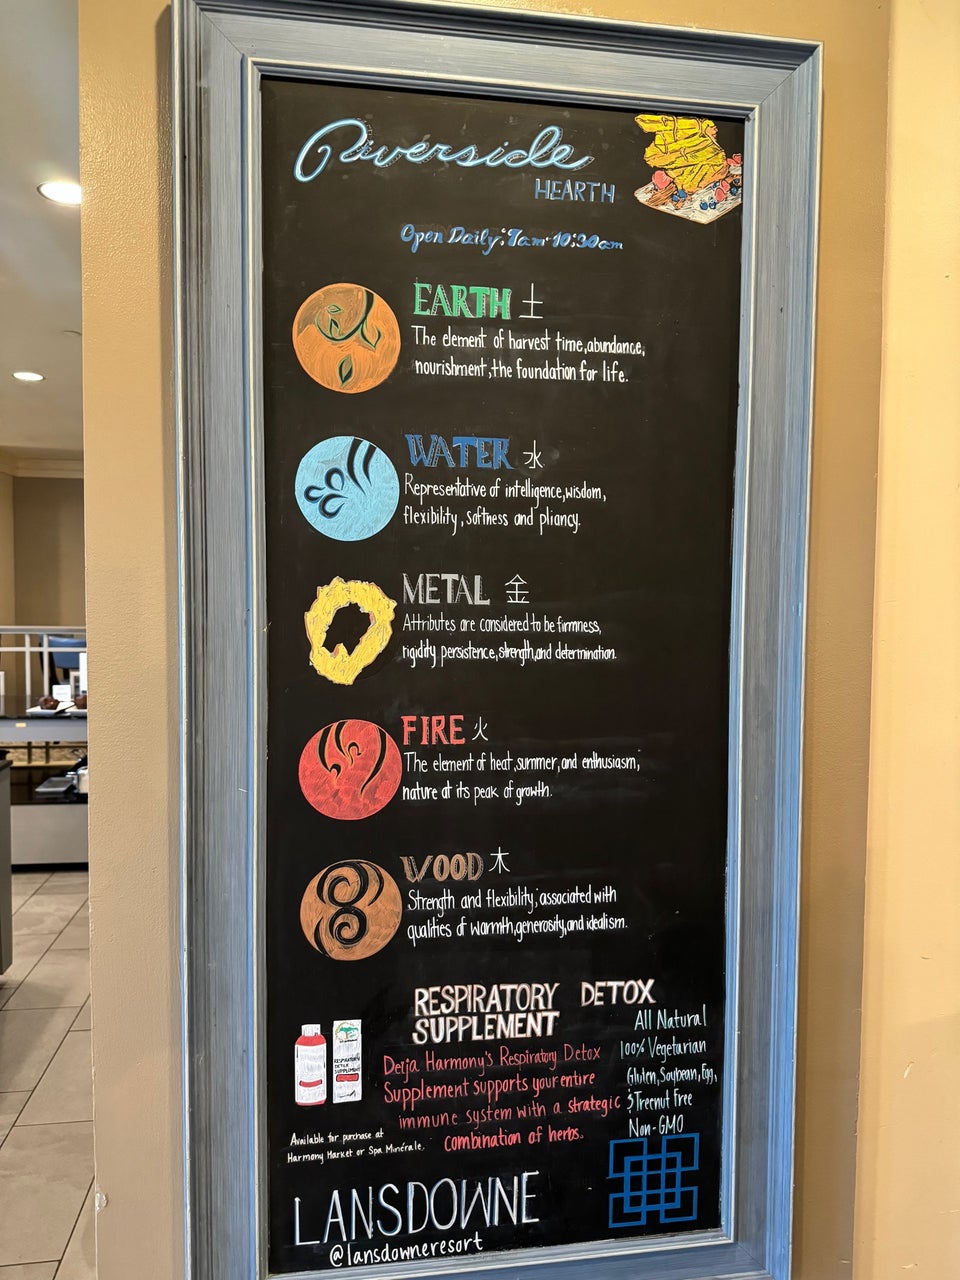 Riverside
HEARTH
Open Daily: 7am-10:30am
EARTH 土
The element of harvest time, abundance,
nourishment, the foundation for life.
WATER 水
Representative of intelligence, wisdom,
flexibility, softness and pliancy.
METAL 金
Attributes are considered to be firmness,
rigidity persistence, strength, and determination.
FIRE 火
The element of heat, summer, and enthusiasm,
nature at its peak of growth.
WOOD 木
Strength and flexibility, associated with
qualities of warmth, generosity, and idealism.
RESPIRATORY DETOX
SUPPLEMENT
Deija Harmony's Respiratory Detox
Supplement supports your entire
immune system with a strategic
combination of herbs.
All Natural
100% Vegetarian
Gluten, Soybean, Egg,
& Treenut Free
Non-GMO
RESPIRATORY
DETOX
SUPPLEMENT
Available for purchase at
Harmony Market or Spa Minérale.
LANSDOWNE
@lansdowneresort